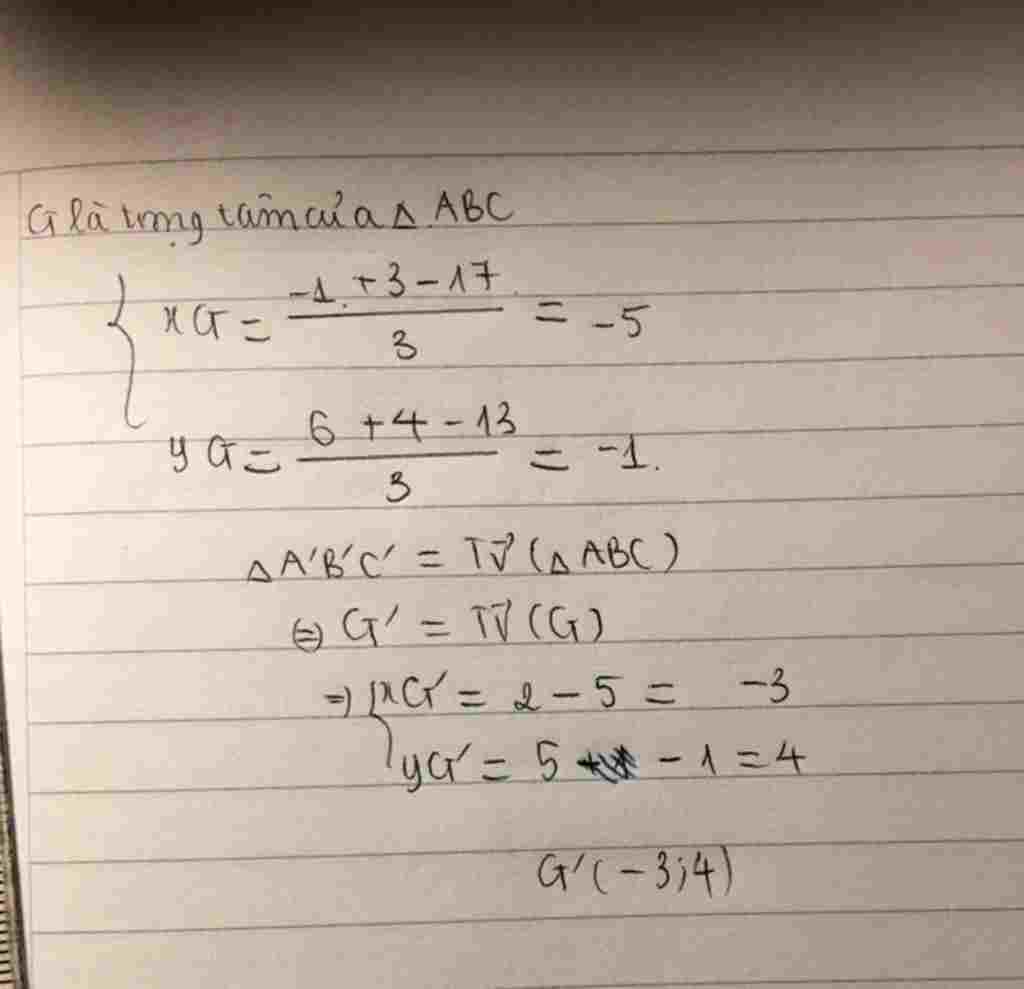 G là trọng tâm của △ ABC
xG = (-1 + 3 - 17)/3 = -5
yG = (6 + 4 - 13)/3 = -1.
△ A'B'C' = Tv⃗ (△ ABC)
⇔ G' = Tv⃗ (G)
⇒ { xG' = 2 - 5 = -3
yG' = 5 - 1 = 4
G' (-3; 4)